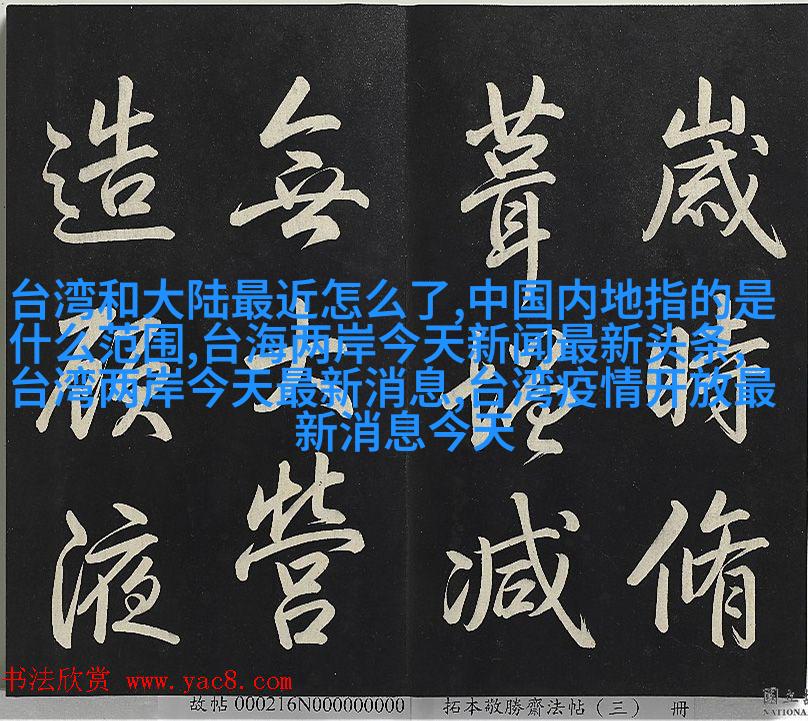 歲時脩
葺增減
無大營
造顧液
台湾和大陆最近怎么了,中国内地指的是
什么范围,台海两岸今天新闻最新头条,
台湾两岸今天最新消息,台湾疫情开放最
新消息今天
书法欣赏 www.yac8.com
故帖 000216N000000000 拓本敬勝齋法帖（三） 冊
國立
NATIONA